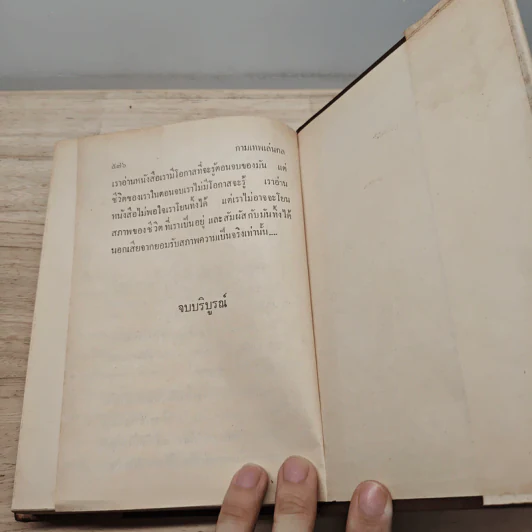 ๕๗๖
กามเทพเล่นกล
เราอ่านหนังสือเรามีโอกาสที่จะรู้ตอนจบของมัน แต่
ชีวิตของเราในตอนจบเราไม่มีโอกาสจะรู้ เราอ่าน
หนังสือไม่พอใจเราโยนทิ้งได้ แต่เราไม่อาจจะโยน
สภาพของชีวิตที่เราเป็นอยู่ และสัมผัสกับมันทิ้งได้
นอกเสียจากยอมรับสภาพความเป็นจริงเท่านั้น....
จบบริบูรณ์